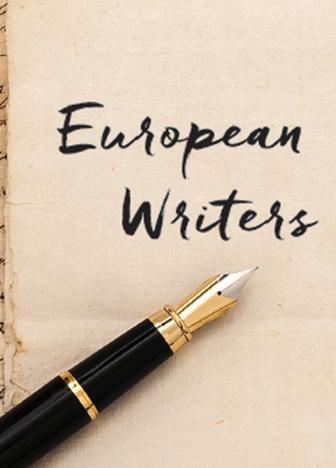 European
Writers